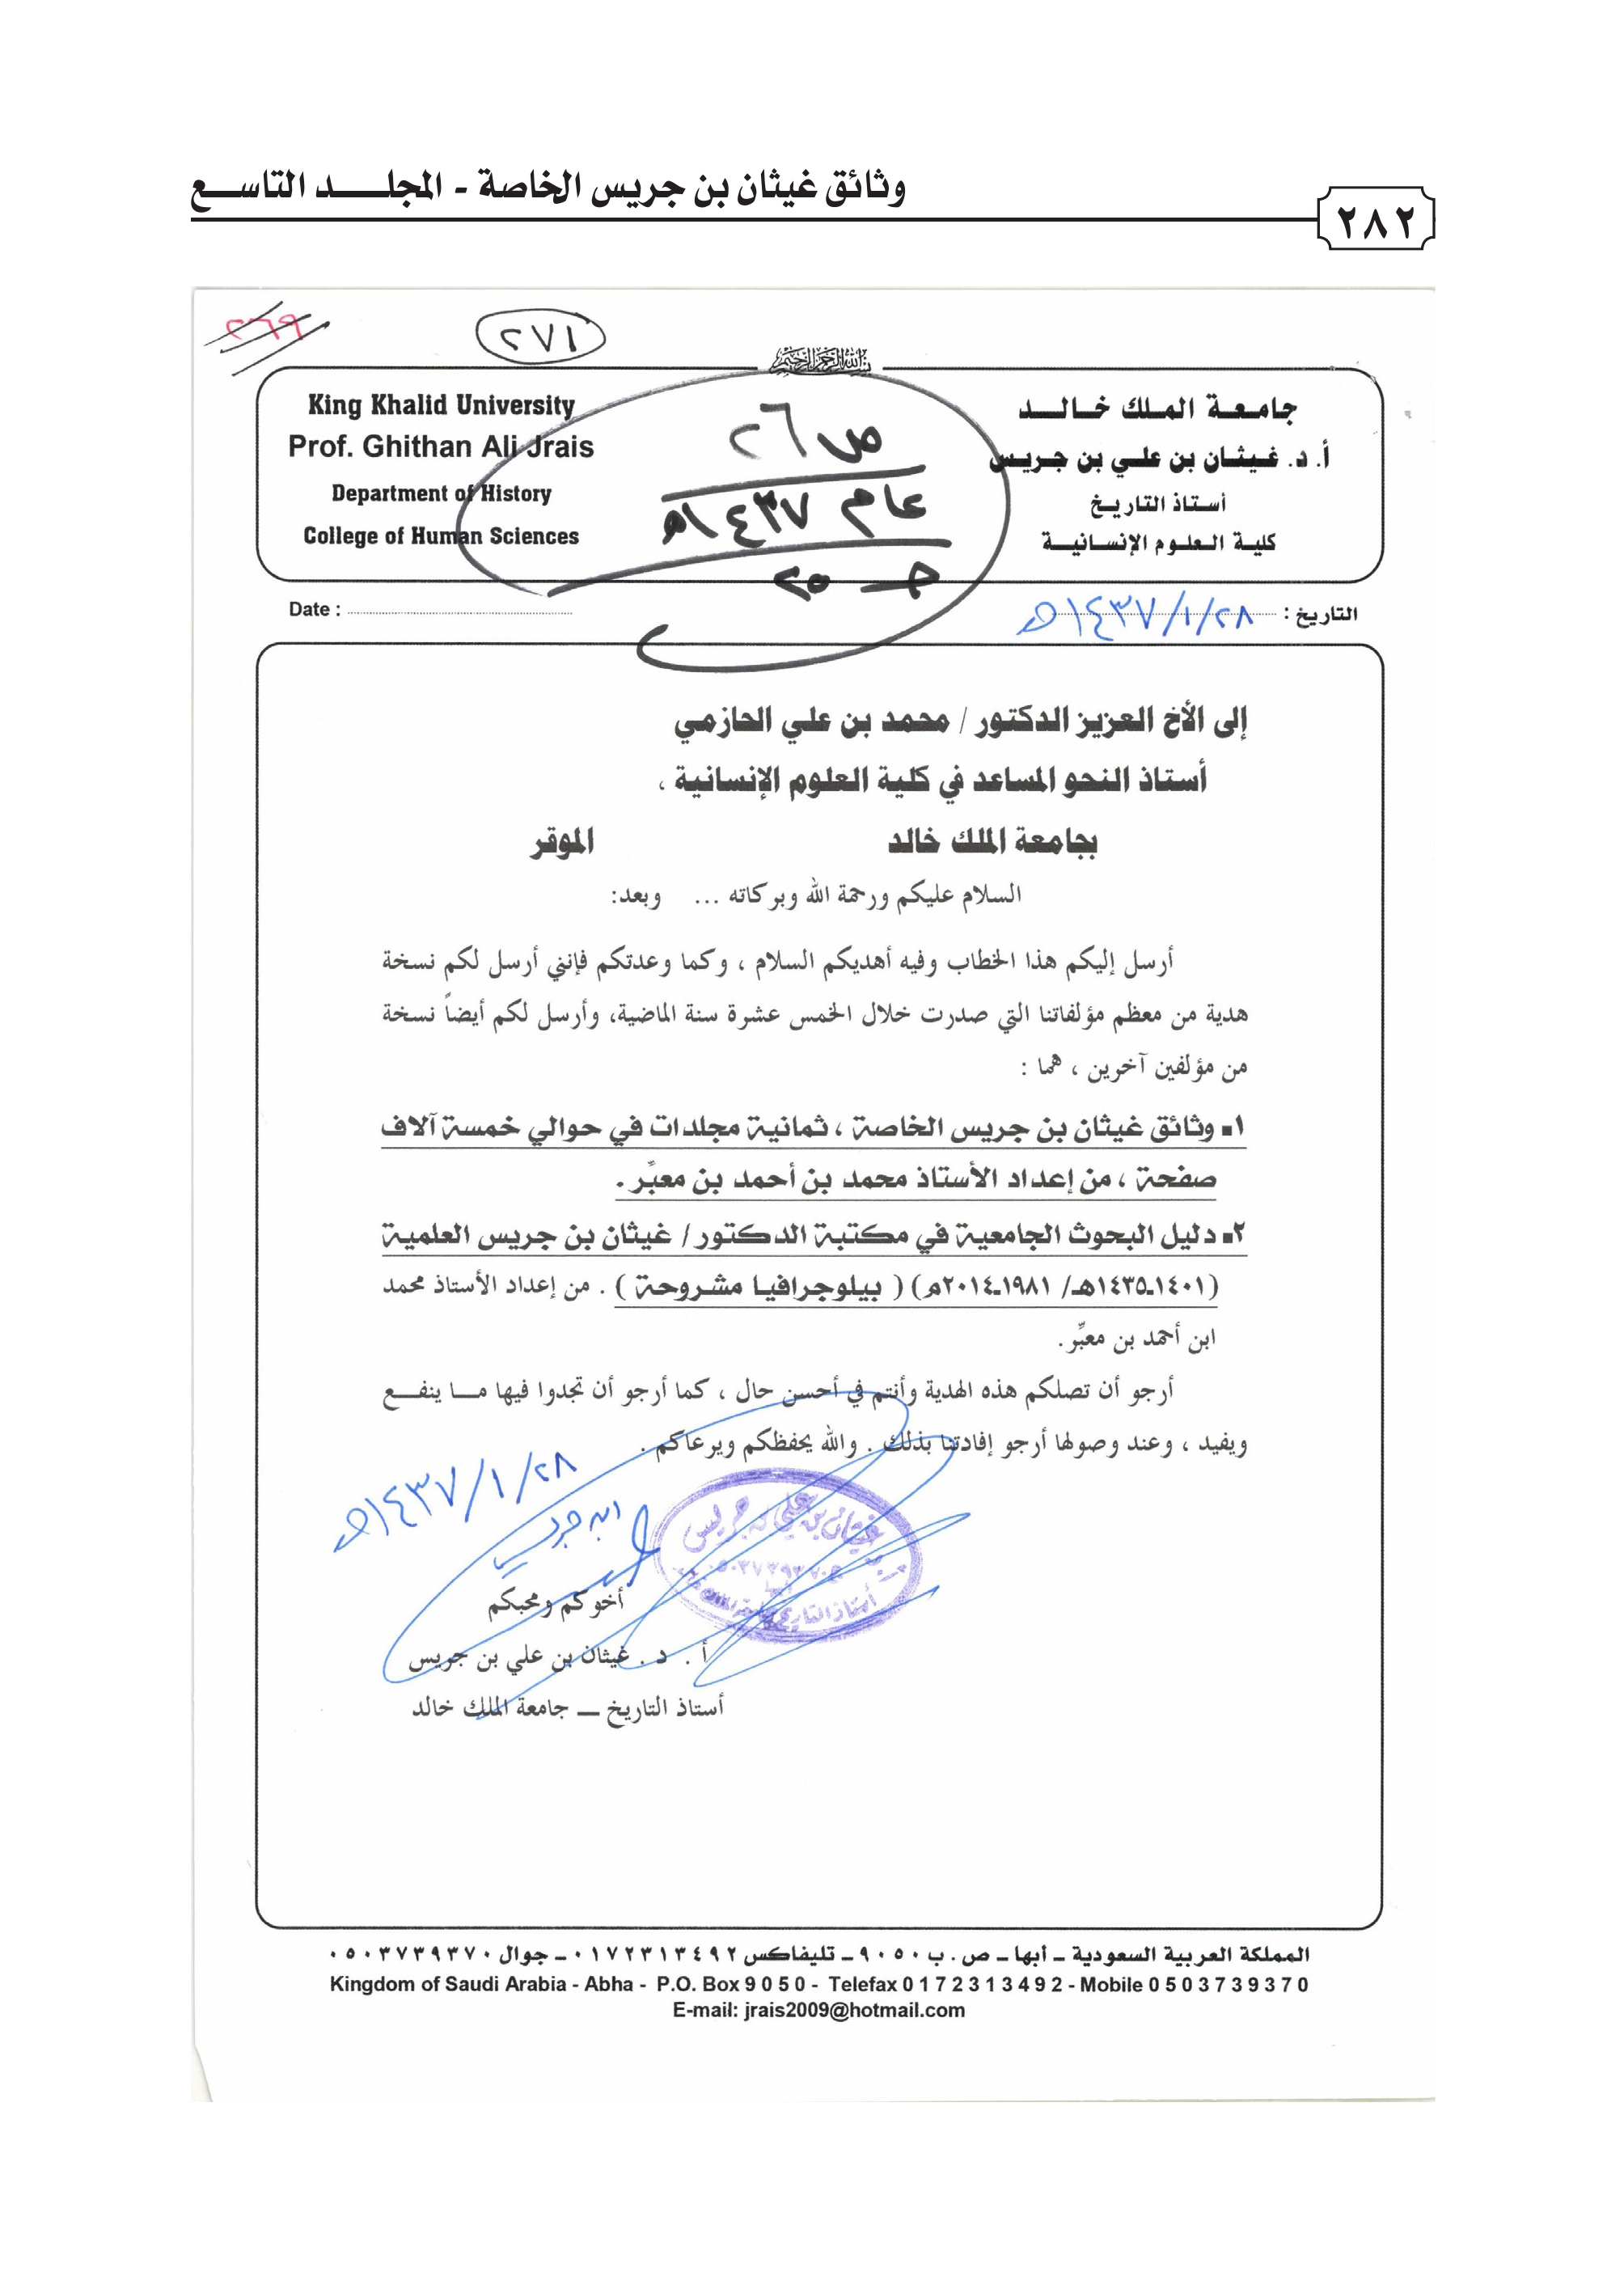 وثائق غيثان بن جريس الخاصة - المجلد التاسع
٢٨٢
٢٦٩
٢٧١
بسم الله الرحمن الرحيم
جامعة الملك خالد
أ. د. غيثان بن علي بن جريس
أستاذ التاريخ
كلية العلوم الإنسانية
King Khalid University
Prof. Ghithan Ali Jrais
Department of History
College of Human Sciences
ص ٢٦
عام ١٤٣٧هـ
جـ ٢٥
التاريخ : ١٤٣٧/١/٢٨هـ
Date :
إلى الأخ العزيز الدكتور / محمد بن علي الحازمي
أستاذ النحو المساعد في كلية العلوم الإنسانية ،
بجامعة الملك خالد الموقر
السلام عليكم ورحمة الله وبركاته ... وبعد:
أرسل إليكم هذا الخطاب وفيه أهديكم السلام ، وكما وعدتكم فإنني أرسل لكم نسخة
هدية من معظم مؤلفاتنا التي صدرت خلال الخمس عشرة سنة الماضية، وأرسل لكم أيضاً نسخة
من مؤلفين آخرين ، هما :
١ـ وثائق غيثان بن جريس الخاصة ، ثمانية مجلدات في حوالي خمسة آلاف
صفحة ، من إعداد الأستاذ محمد بن أحمد بن معبِّر .
٢ـ دليل البحوث الجامعية في مكتبة الدكتور / غيثان بن جريس العلمية
(١٤٠١ـ١٤٣٥هـ/ ١٩٨١ـ٢٠١٤م) ( بيلوجرافيا مشروحة ) . من إعداد الأستاذ محمد
ابن أحمد بن معبِّر .
أرجو أن تصلكم هذه الهدية وأنتم في أحسن حال ، كما أرجو أن تجدوا فيها ما ينفع
ويفيد ، وعند وصولها أرجو إفادتنا بذلك . والله يحفظكم ويرعاكم .
١٤٣٧/١/٢٨هـ
ابن جريس
غيثان بن علي بن جريس
أستاذ التاريخ
أخوكم ومحبكم
أ . د . غيثان بن علي بن جريس
أستاذ التاريخ ــ جامعة الملك خالد
المملكة العربية السعودية ـ أبها ـ ص . ب ٩٠٥٠ ـ تليفاكس ٠١٧٢٣١٣٤٩٢ ـ جوال ٠٥٠٣٧٣٩٣٧٠
Kingdom of Saudi Arabia - Abha - P.O. Box 9 0 5 0 - Telefax 0 1 7 2 3 1 3 4 9 2 - Mobile 0 5 0 3 7 3 9 3 7 0
E-mail: jrais2009@hotmail.com